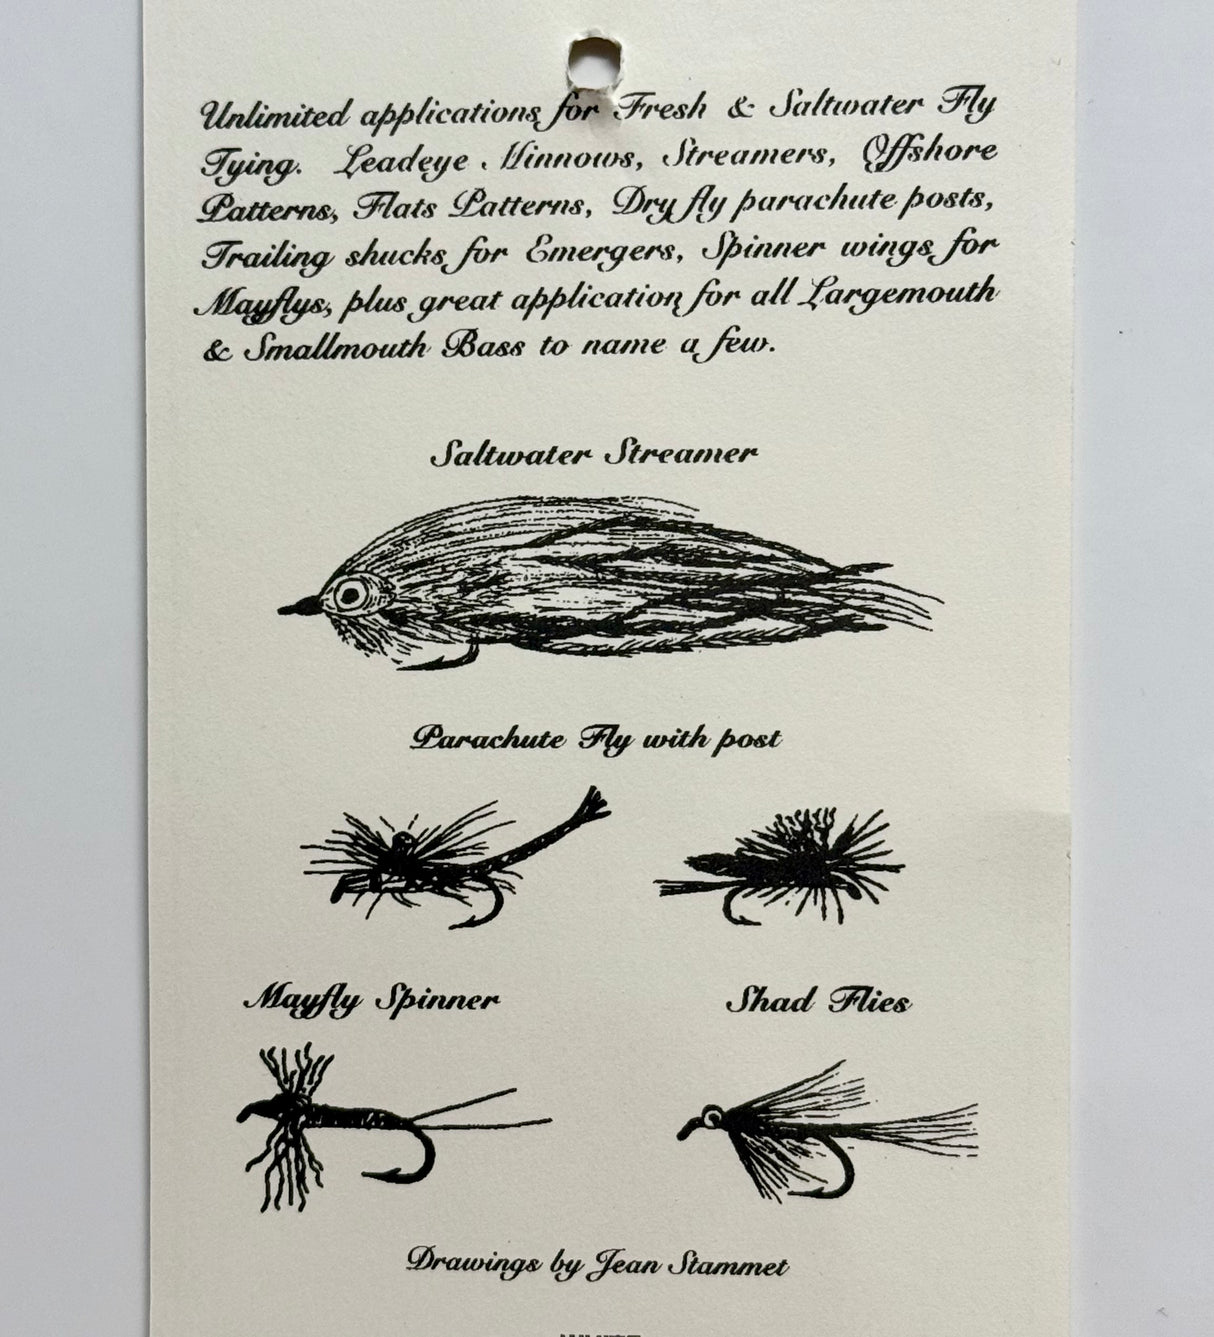 Unlimited applications for Fresh & Saltwater Fly
Tying. Leadeye Minnows, Streamers, Offshore
Patterns, Flats Patterns, Dry fly parachute posts,
Trailing shucks for Emergers, Spinner wings for
Mayflys, plus great application for all Largemouth
& Smallmouth Bass to name a few.
Saltwater Streamer
Parachute Fly with post
Mayfly Spinner
Shad Flies
Drawings by Jean Stammet